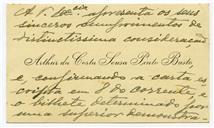 A V. Ex.cia apresenta os seus
sinceros cumprimentos de
distinctissima consideração
Arthur da Costa Sousa Pinto Basto,
e, confirmando a carta es-
cripta em 8 do corrente, e
o bilhete determinado por
uma superior demonstra